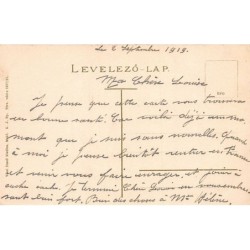 Le 2 Septembre 1913.
LEVELEZŐ-LAP.
Ma Chère Louise
Je pense que cette carte vous trouvera
en bonne santé. Car voilà déjà un mo-
ment que je suis sans nouvelles. Quand
à moi je pense bientôt rentrer en France
et venir vous faire enrager, et pour
cette carte. Je termine Chère Louise en vous embras-
sant bien fort, Bien des choses à Mme Hélène.